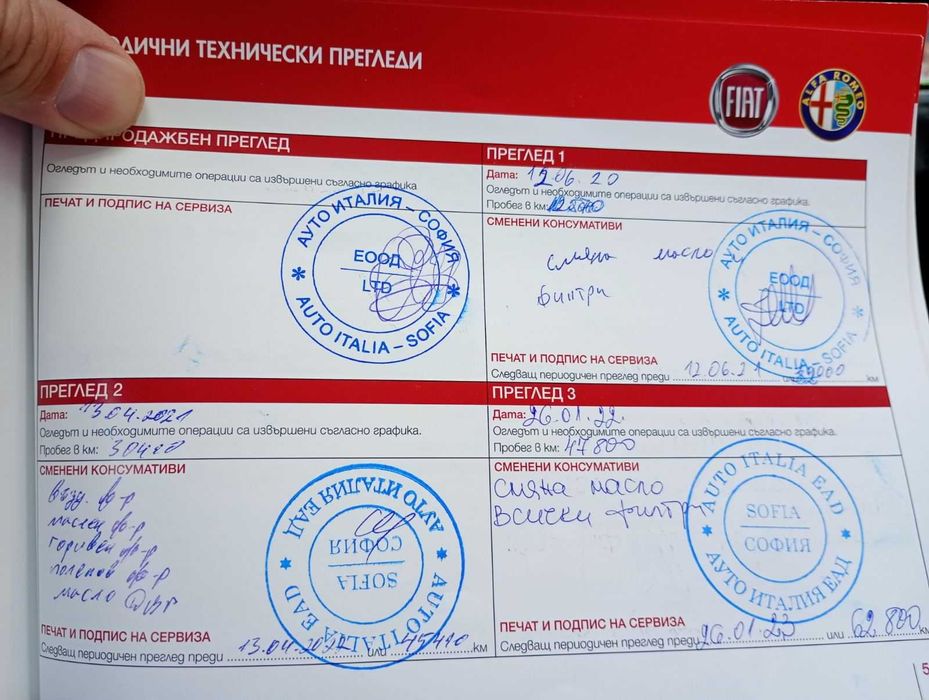 ДИЧНИ ТЕХНИЧЕСКИ ПРЕГЛЕДИ
FIAT
ALFA ROMEO
ПРОДАЖБЕН ПРЕГЛЕД
Огледът и необходимите операции са извършени съгласно графика
ПЕЧАТ И ПОДПИС НА СЕРВИЗА
АУТО ИТАЛИЯ – СОФИЯ
ЕООД
LTD
AUTO ITALIA – SOFIA
ПРЕГЛЕД 1
Дата: 12.06.20
Огледът и необходимите операции са извършени съгласно графика.
Пробег в км:
СМЕНЕНИ КОНСУМАТИВИ
смяна масло
филтри
АУТО ИТАЛИЯ – СОФИЯ
ЕООД
LTD
AUTO ITALIA – SOFIA
ПЕЧАТ И ПОДПИС НА СЕРВИЗА
Следващ периодичен преглед преди 12.06.21 или км
ПРЕГЛЕД 2
Дата: 13.04.2021
Огледът и необходимите операции са извършени съгласно графика.
Пробег в км:
СМЕНЕНИ КОНСУМАТИВИ
възд. ф-р
маслен ф-р
горивен ф-р
поленов ф-р
масло
АУТО ИТАЛИЯ ЕАД
СОФИЯ
SOFIA
AUTO ITALIA EAD
ПЕЧАТ И ПОДПИС НА СЕРВИЗА
Следващ периодичен преглед преди 13.04.2022 или 45410 км
ПРЕГЛЕД 3
Дата: 26.01.22г.
Огледът и необходимите операции са извършени съгласно графика.
Пробег в км: 47800
СМЕНЕНИ КОНСУМАТИВИ
Смяна масло
Всички филтри
AUTO ITALIA EAD
SOFIA
СОФИЯ
АУТО ИТАЛИЯ ЕАД
ПЕЧАТ И ПОДПИС НА СЕРВИЗА
Следващ периодичен преглед преди 26.01.23 или 62800 км
5